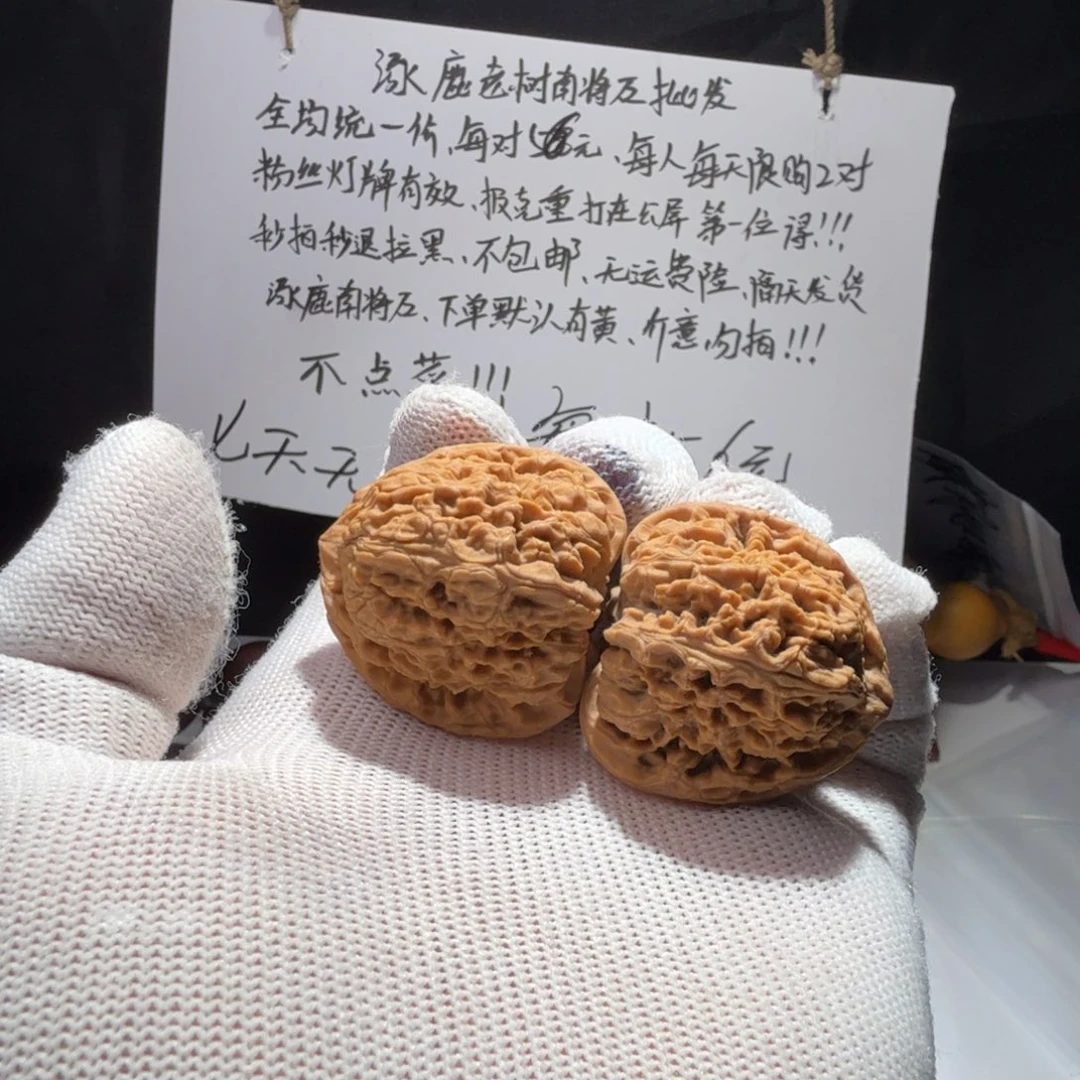 涿鹿老树南将石批发
全均统一价、每对元、每人每天限购2对
粉丝灯牌有效、报克重打在公屏第一位得!!!
秒拍秒退拉黑、不包邮、无运费险、隔天发货
涿鹿南将石、下单默认有黄、介意勿拍!!!
不点菜!!!
七天无